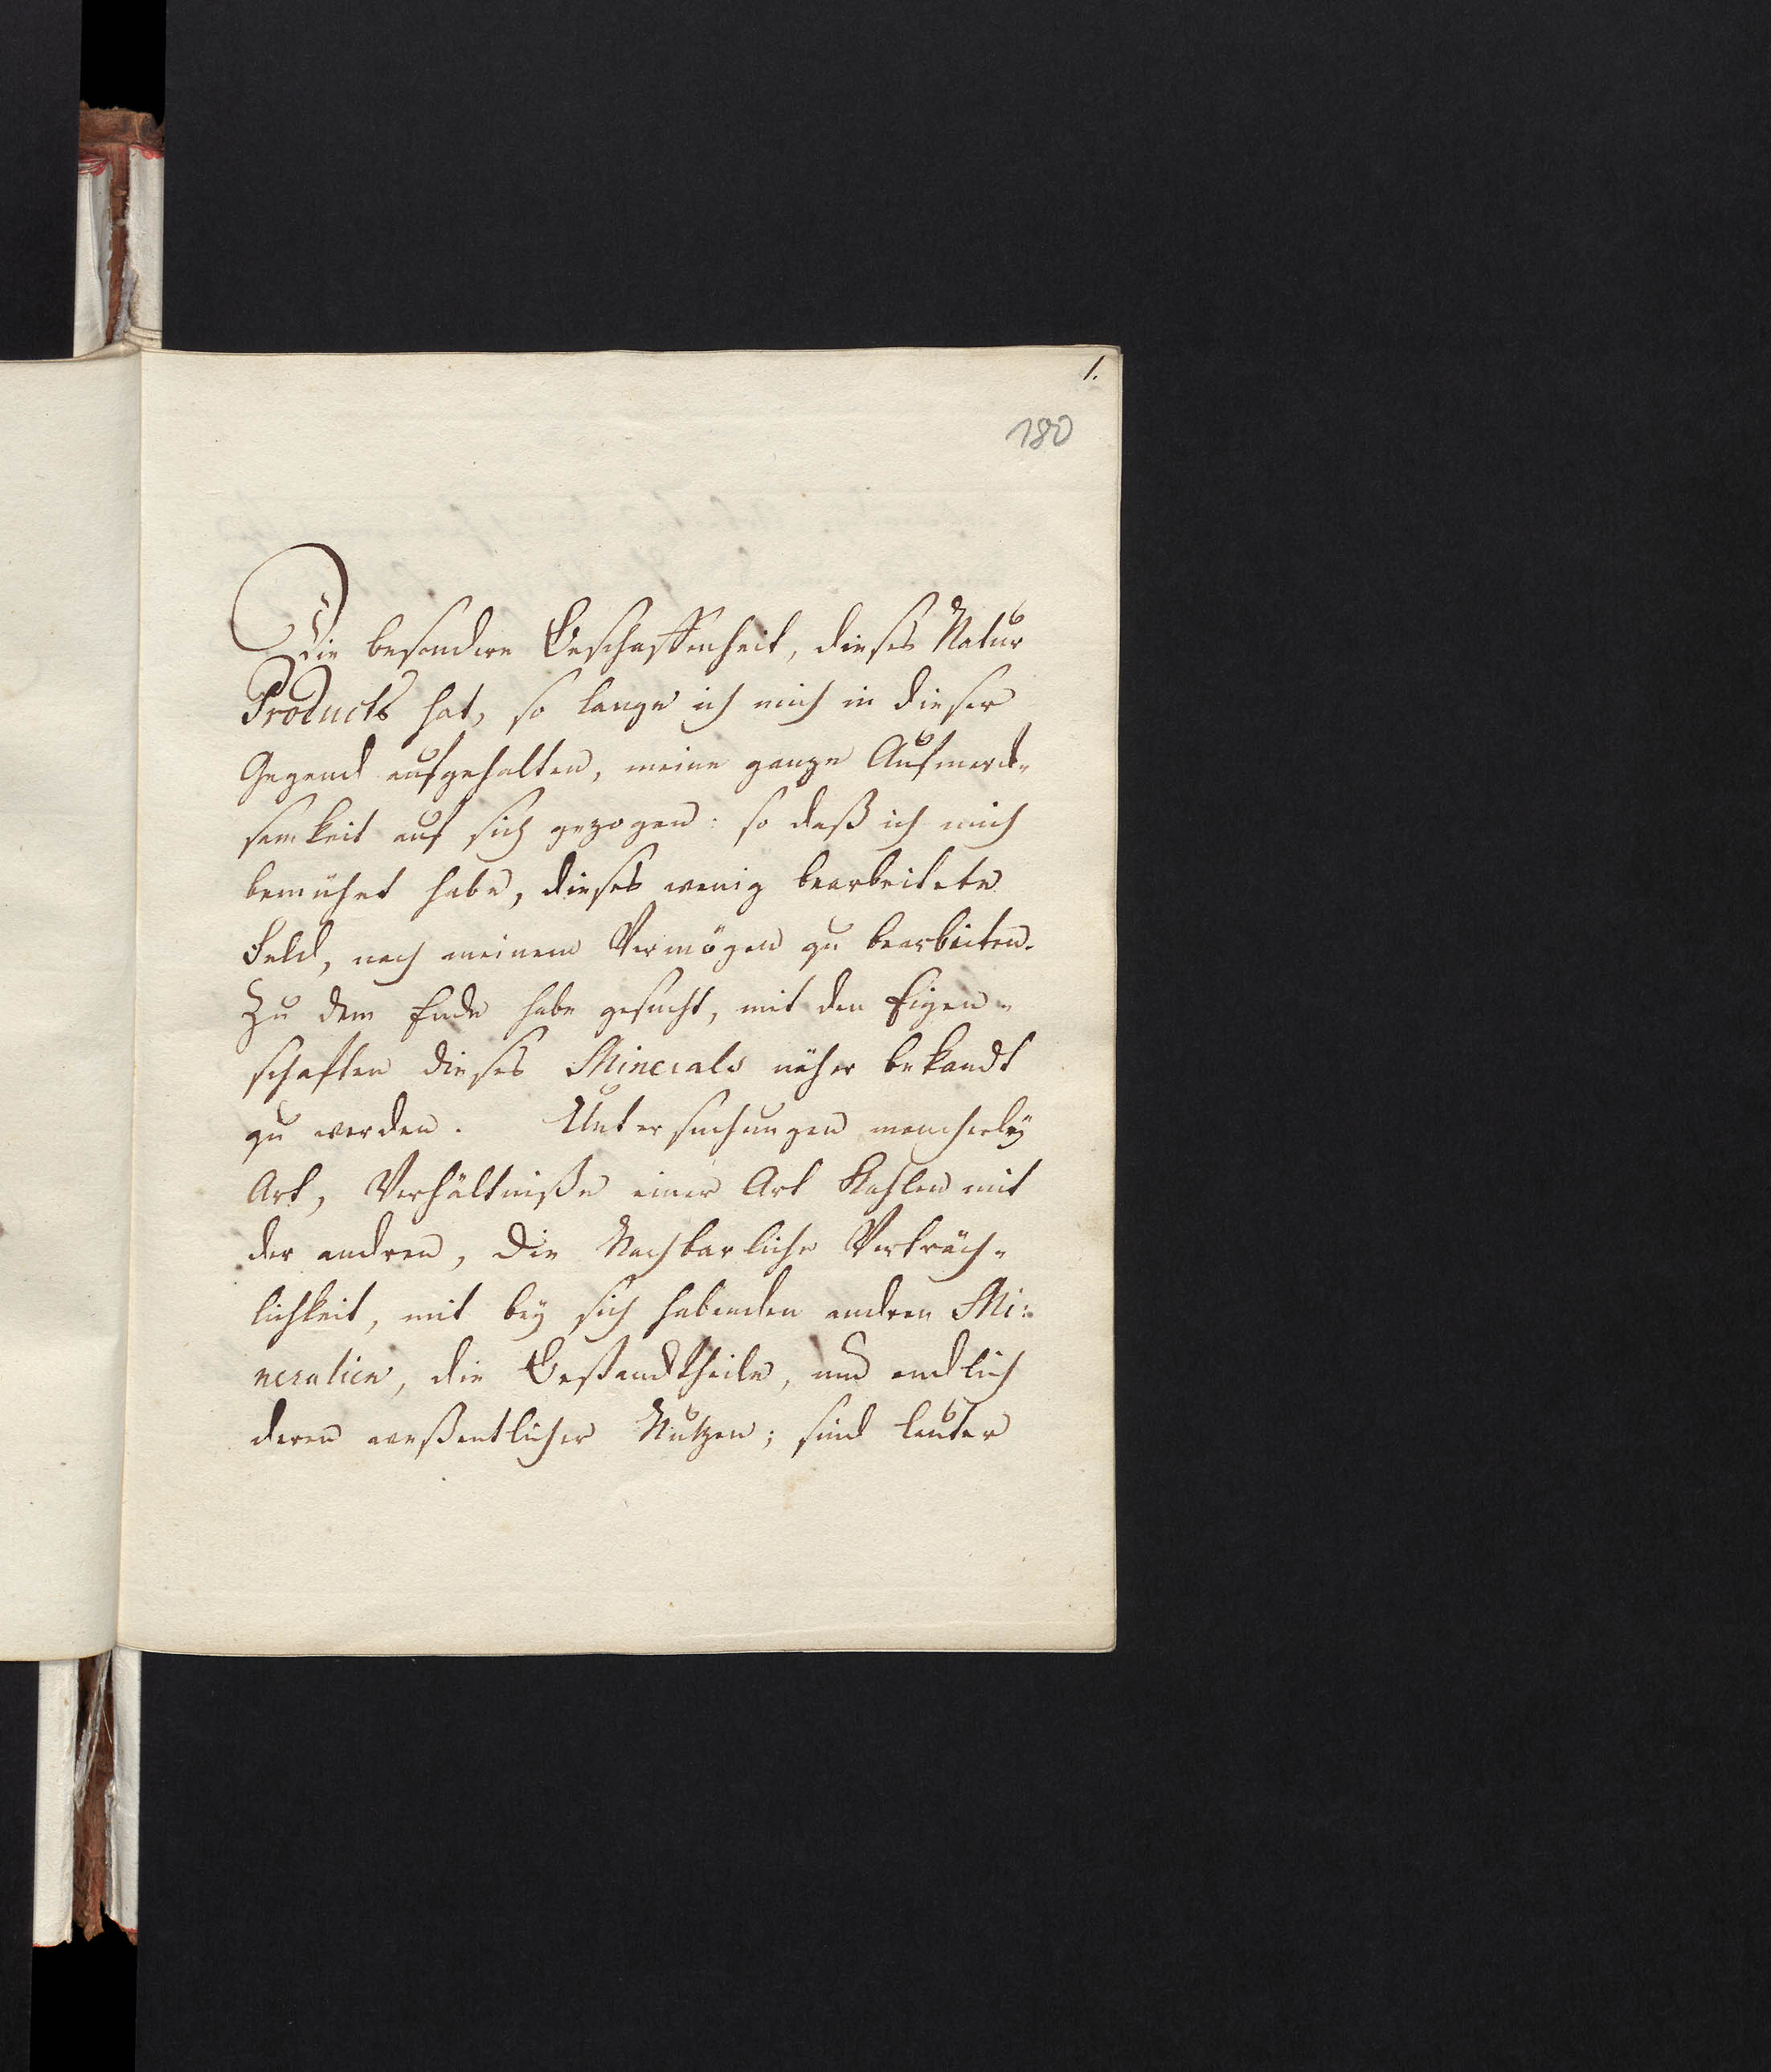 1.
180
Die besondere Beschaffenheit, dieses Natur
Products hat, so lange ich mich in dieser
Gegend aufgehalten, meine ganze Aufmerck-
samkeit auf sich gezogen: so daß ich mich
bemühet habe, dieses wenig bearbeitete
Feld, nach meinem Vermögen zu bearbeiten.
Zu dem Ende habe gesucht, mit den Eigen-
schaften dieses Minerals näher bekandt
zu werden. Untersuchungen mancherley
Art, Verhältniße einer Art Kohlen mit
der andren, die Nachbarliche Verträch-
lichkeit, mit bey sich habenden andren Mi-
neralien, die Bestandtheile, und endlich
deren weßentlicher Nutzen; sind lauter